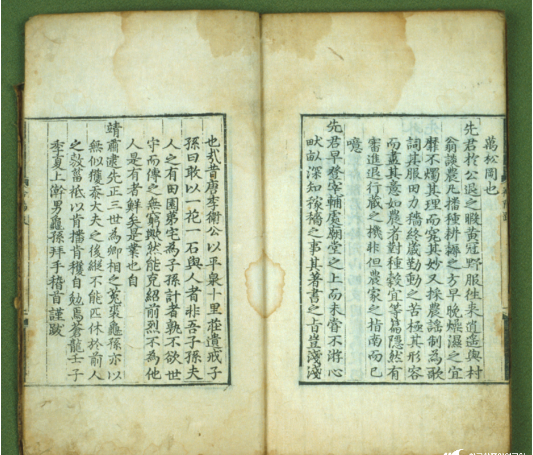 萬松岡也
先君於公退之暇黃冠野服徃來逍遙與村
翁談農凡播種耕耨之方早晚燥濕之宜
靡不燭其理而究其妙又採農謠制為歌
詞其服田力穡終歲勤動之苦極其形容
而盡其意如農者對種穀宜等篇隱然有
審進退行藏之機非但農家之指南而已
噫
先君早登宰輔處廟堂之上而未嘗不游心
畎畝深知稼穡之事其著書之旨豈淺淺
也哉昔唐李衛公以平泉十里莊遺戒子
孫曰敢以一花一石與人者非吾子孫夫
人之有田園第宅為子孫計者孰不欲世
守而傳之無窮歟然能克紹前烈不為他
人是有者鮮矣是業也自
靖肅逮先正三世為卿相之菟裘龜孫亦以
無似獲忝大夫之後縱不能匹休於前人
之敷菑秪以肯播肯穫自勉焉蒼龍壬子
季夏上澣男龜孫拜手稽首謹跋